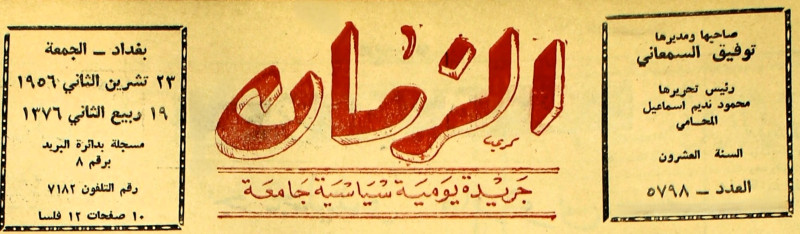 صاحبها ومديرها
توفيق السمعاني
رئيس تحريرها
محمود نديم اسماعيل
المحامي
السنة العشرون
العدد – ٥٧٩٨
الزمان
جريدة يومية سياسية جامعة
بغداد – الجمعة
٢٣ تشرين الثاني ١٩٥٦
١٩ ربيع الثاني ١٣٧٦
مسجلة بدائرة البريد
برقم ٨
رقم التلفون ٧١٨٢
١٠ صفحات ١٢ فلسا